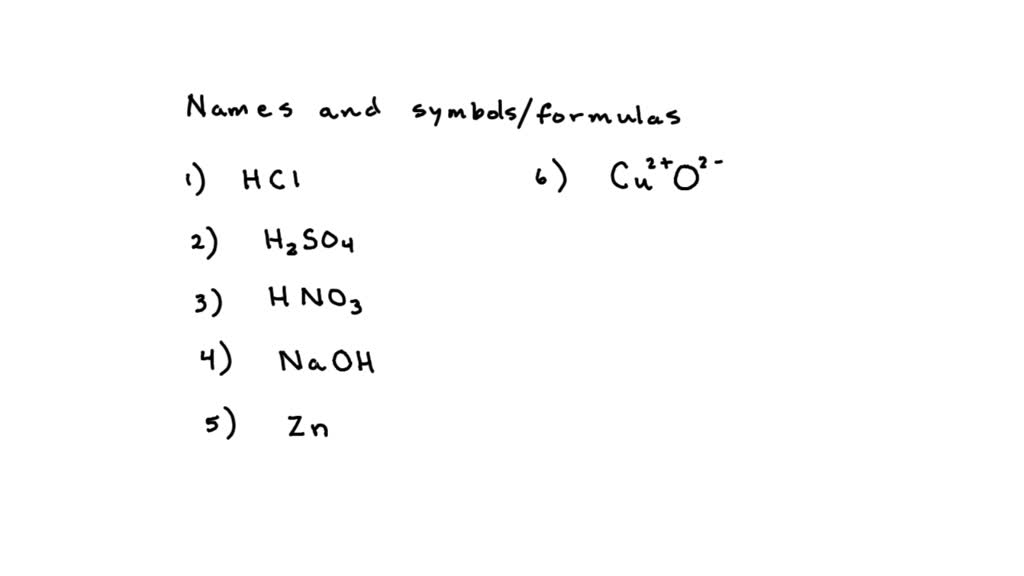 Names and symbols/formulas
1) HCl
2) H₂SO₄
3) HNO₃
4) NaOH
5) Zn
6) Cu²⁺O²⁻